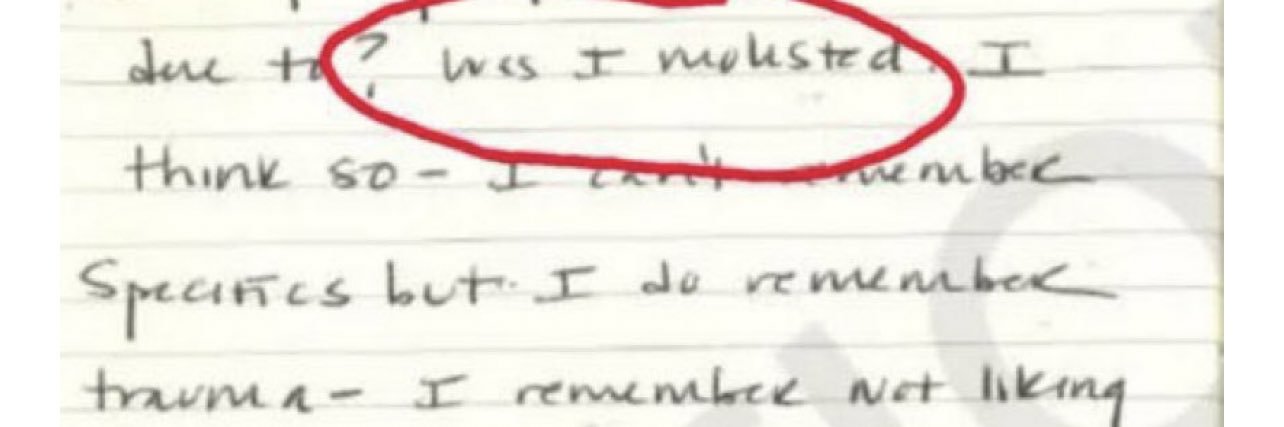 due to? Was I molested. I
think so - I can't remember
Specifics but I do remember
trauma - I remember not liking